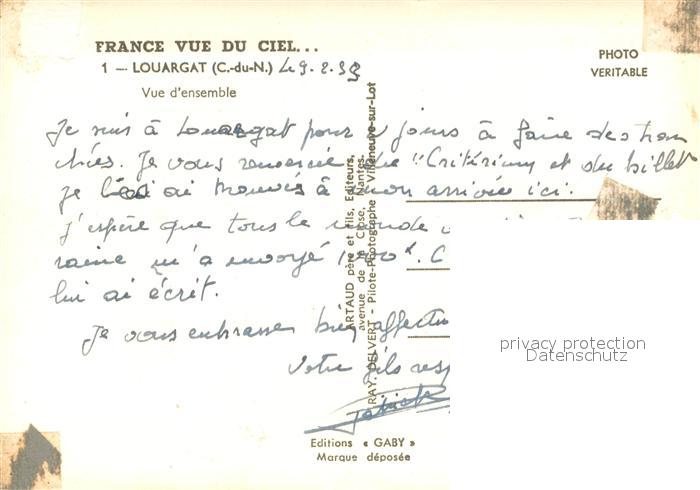 FRANCE VUE DU CIEL...
1 — LOUARGAT (C.-du-N.)
Vue d'ensemble
PHOTO
VERITABLE
Je suis à Louargat pour jours à faire des tran
chées. Je vous remercie du "Critérium et du billet
je les ai trouvés à mon arrivée ici.
j'espère que tous le monde
raine m'a envoyé
lui ai écrit.
Je vous embrasse bien affectu
Votre fils resp
ARTAUD père et fils, Editeurs,
avenue de la Close, Nantes.
RAY. DELVERT - Pilote-Photographe - Villeneuve-sur-Lot
privacy protection
Datenschutz
Editions « GABY »
Marque déposée